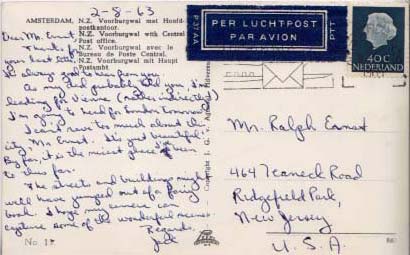 2-8-63
AMSTERDAM, N.Z. Voorburgwal met Hoofd-
postkantoor.
N.Z. Voorburgwal with Central
Post office.
N.Z. Voorburgwal avec le
Bureau de Poste Central.
N.Z. Voorburgwal mit Haupt
Postambt.
Dear Mr. Ernest
Thanks for
your last letter.
always good to hear from you.
As my dad probably told you, I'm
heading for Vienna
I'm going to head for London tomorrow.
I can't rave too much about this
city Mr. Ernest. It's just beautiful.
By far, it is the nicest place I've been
to thus far.
The streets and buildings might
well have jumped out of a fairy
book. I hope my camera can
capture some of the wonderful scenes.
Regards,
No. 11
PER LUCHTPOST
PAR AVION
P337A
PTT
40 C
NEDERLAND
Copyright J. G. v. Agtmaal, Hilversum
Mr. Ralph Ernest
464 Teaneck Road
Ridgefield Park,
New Jersey
U.S.A.